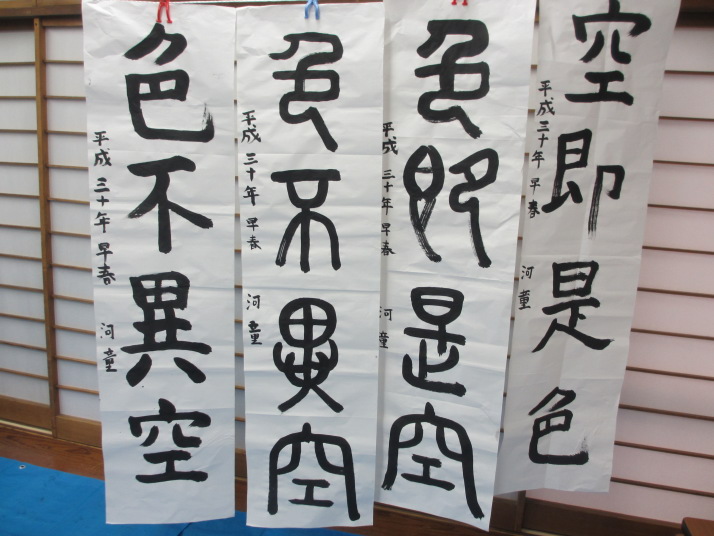 空即是色
平成三十年 早春 河童
色即是空
平成三十年 早春 河童
色不異空
平成三十年 早春 河童
色不異空
平成三十年 早春 河童